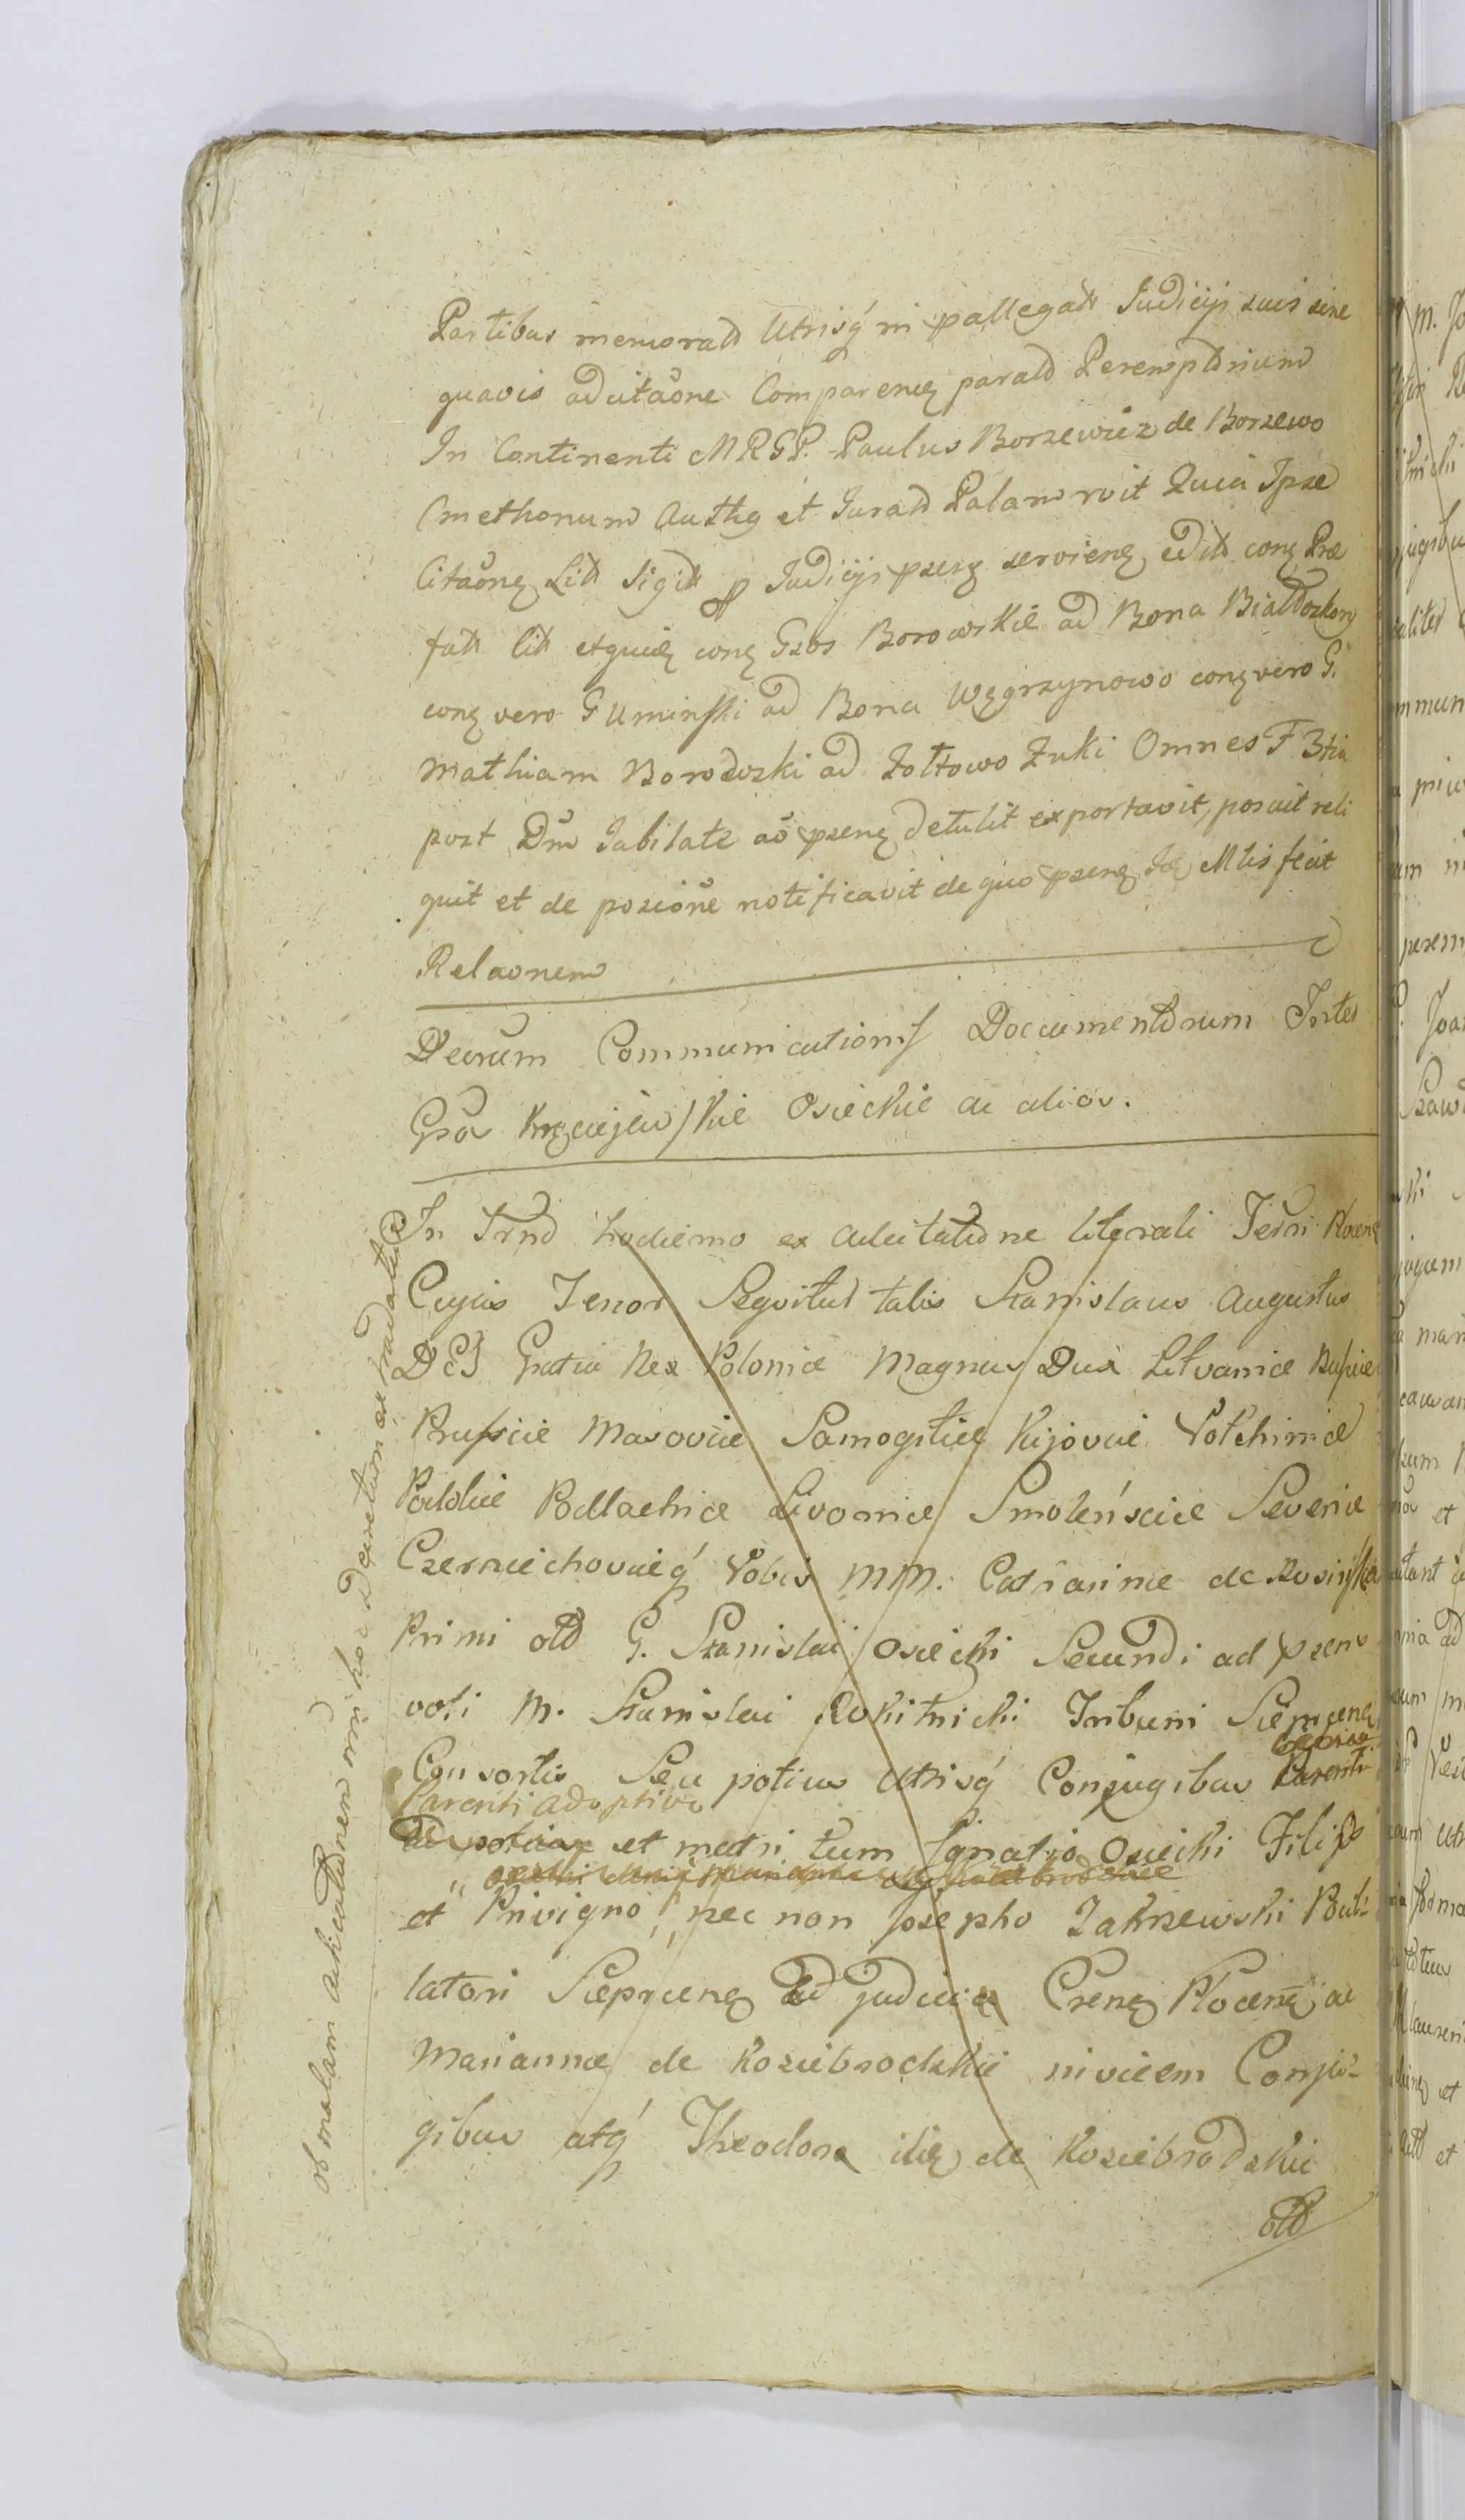 Partibus memorato Utrisq́ in pallegato Judicijs suis sine
quavis adcitaõne Comparenę parato Peremptorium
In Continenti MRGP. Paulus Borzewicz de Borzewo
Cmethonum Authę et Jurato Palam roit Quia Ipse
Citaõnę Litt Sigitt Judicijs psenę servienę edito conę Præ
fatt Litt conę Gsos Borowskie ad Bona
conę vero G Uminſki ad Bona Węgrzynowo conę vero G.
Mathiam Borodzki ad Zołtowo Zuki Omnes F 3tia
post Dm̃ Jubilate aõ psenę detulit exportavit, posuit reli
quit et de posiõne notificavit de quo psenę Mtis fecit
Relaonem
Decrum Communicationiſ Documentorum Inter
Gsos Krzęciejewſkie Osieckie ac alios.
In Trno hodierno ex adcitatione literali Terri Plocenę
Cujus Tenor Seqvitur talis Stanislaus Augustus
DEI Gratia Rex Poloniæ Magnus Dux Litvaniæ Ruſsiæ
Pruſsiæ Masoviæ Samogitiæ Kijoviæ Volhiniæ
Podoliæ Podlachiæ Livoniæ Smolénsciæ Severiæ
Czerniechoviæq́ Vobis MM. Catharinæ de Rosinſkie
Primi olo G. Stanislai Osiecki Secundi ad psens
voti M. Stanislai Rokitnicki Tribuni Siepcenę
Consortis Seu potius Utrisq́ Conjugibus Parenti
Parenti adoptivo
et matri tum Ignatio Osiecki Filio
et Privigno, nec non Josepho Zakrzewski Postu-
latori Siepcenę ad judicia Crenę Plocenę ac
Mariannæ de Koziebrodzkie invicem Conju-
gibus atq́ Theodora de Koziebrodzkie
olo
ob malam adicitationem hoc Decretum